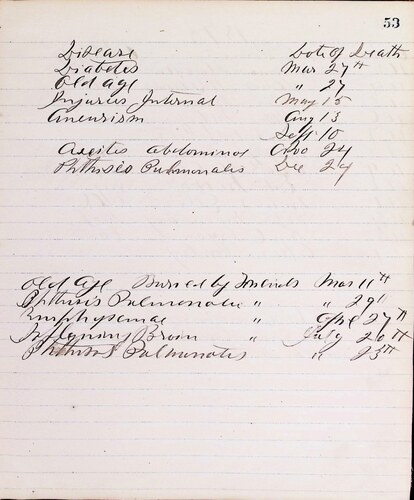 53
Disease Date of Death
Diabetes Mar 27th
Old age " 27
Injuries Internal May 15
Aneurism Aug 13
Sept 10
Ascites abdominal 24
Phthisis Pulmonales Dec 24
Old Age Buried by Friends Mar 11th
Phthisis Pulmonales " " 29
Emphysemae " Apl 27th
Brain " July 20th
Phthisis Pulmonales " 23th